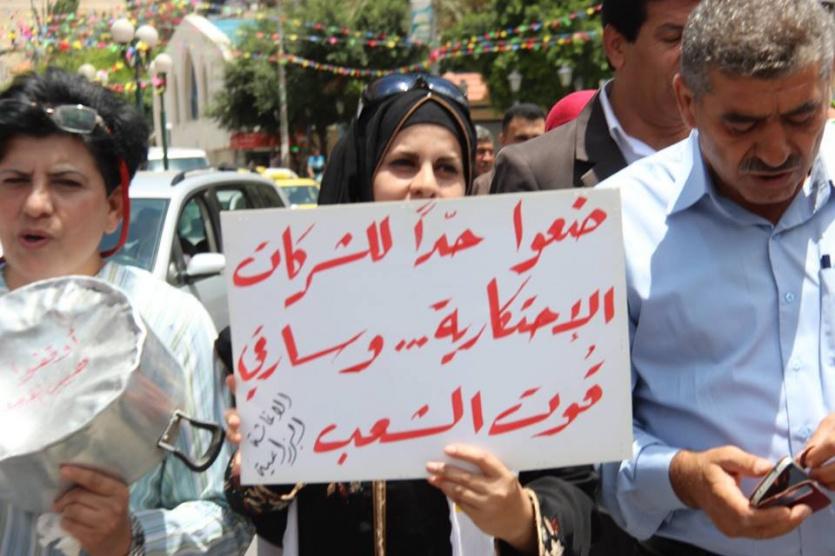 ضعوا حدّاً للشركات
الإحتكارية... وسارقي
قُوت الشعب
الاغاثة
الزراعية
أوقفوا